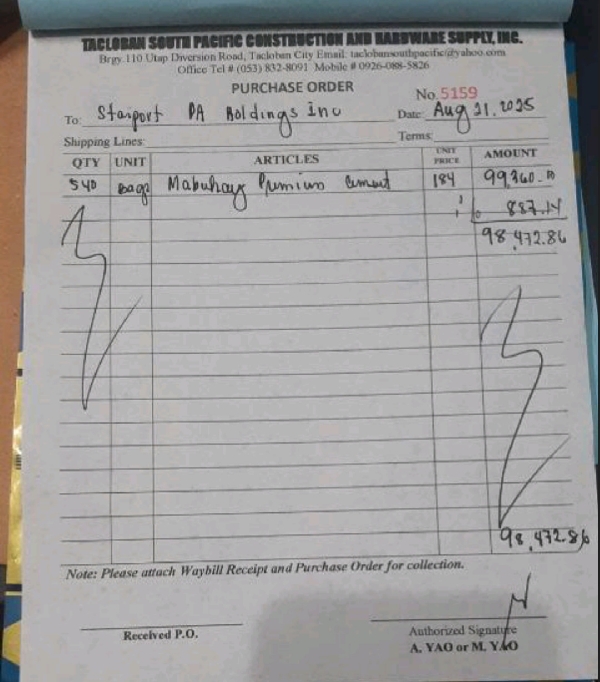 TACLOBAN SOUTH PACIFIC CONSTRUCTION AND HARDWARE SUPPLY, INC.
Brgy. 110 Utap Diversion Road, Tacloban City Email: taclobansouthpacific@yahoo.com
Office Tel # (053) 832-8091 Mobile # 0926-088-5826
PURCHASE ORDER
No. 5159
To: Starport PA Holdings Inc Date: Aug 21, 2025
Shipping Lines: Terms:
QTY UNIT ARTICLES UNIT PRICE AMOUNT
540 bags Mabuhay Premium cement 184 99,360.00
887.14
98,472.86
98,472.86
Note: Please attach Waybill Receipt and Purchase Order for collection.
Received P.O. Authorized Signature
A. YAO or M. YAO